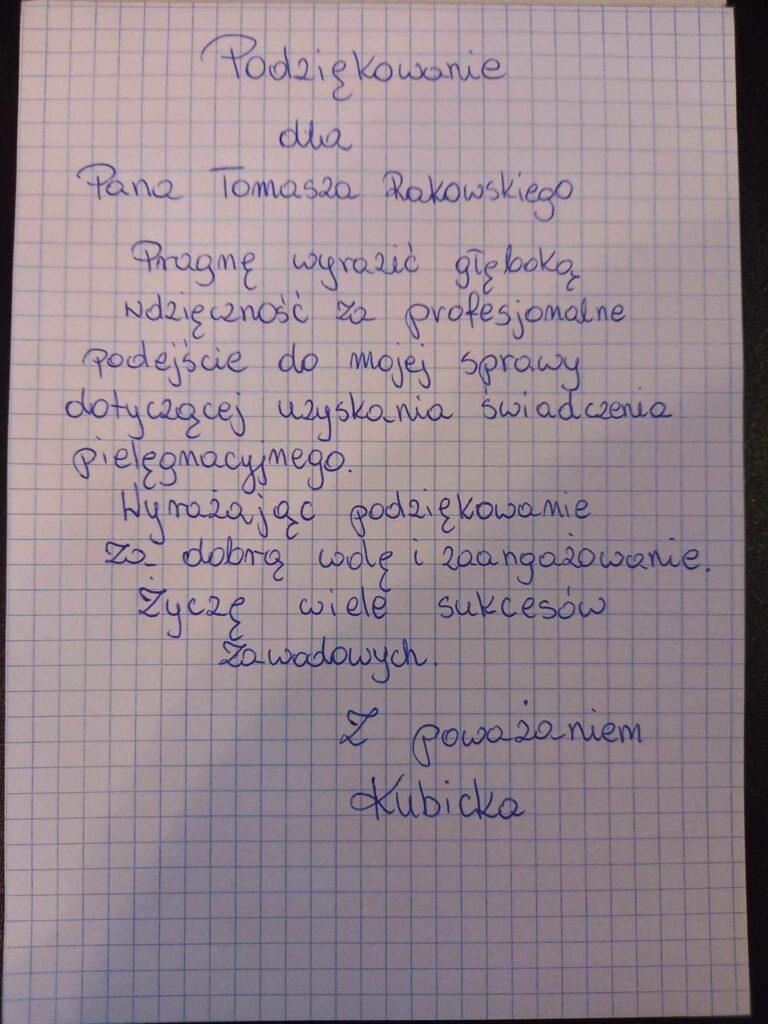 Podziękowanie
dla
Pana Tomasza Rakowskiego
Pragnę wyrazić głęboką
wdzięczność za profesjonalne
podejście do mojej sprawy
dotyczącej uzyskania świadczenia
pielęgnacyjnego.
Wyrażając podziękowanie
za dobrą wolę i zaangażowanie.
Życzę wiele sukcesów
zawadowych.
Z poważaniem
Kubicka